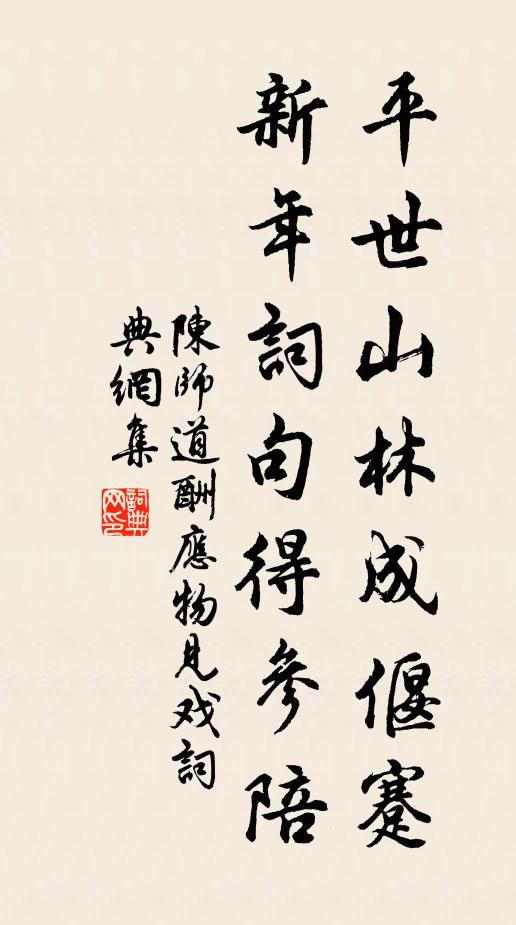 平世山林成偃蹇
新年詞句得參陪
陳師道酬應物見戏詞
典網集
詞典网印